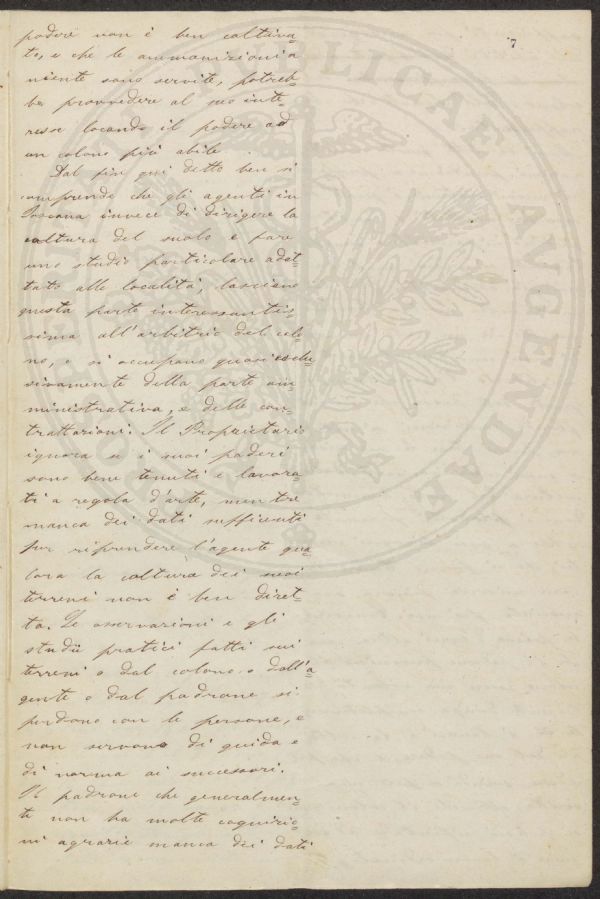 7
podere non è ben coltiva=
to, e che le ammonizioni a
niente sono servite, potreb=
be provvedere al suo inte=
resse locando il podere ad
un colono più abile.
Dal fin qui detto ben si
comprende che gli agenti in
Toscana invece di dirigere la
cultura del suolo e fare
uno studio particolare adat=
tato alle località, lasciano
questa parte interessantis=
sima all'arbitrio del colo=
no, e si occupano quasi esclu=
sivamente della parte am=
ministrativa, e delle con=
trattazioni. Il Proprietario
ignora se i suoi poderi
sono bene tenuti e lavora=
ti a regola d'arte, mentre
manca dei dati sufficenti
per riprendere l'agente qua=
lora la coltura dei suoi
terreni non è ben diret=
ta. Le osservazioni e gli
studii pratici fatti sui
terreni o dal colono o dall'a=
gente o dal padrone si
perdono con le persone, e
non servono di guida e
di norma ai successori.
Il padrone che generalmen=
te non ha molte cognizio=
ni agrarie manca dei dati
PUBLICAE
AUGENDAE